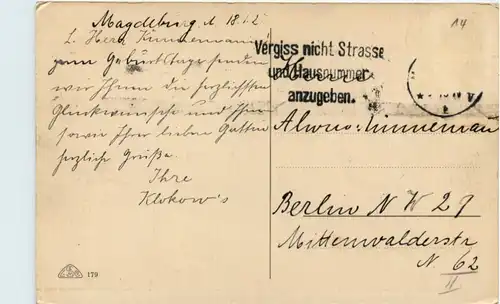 Magdeburg d 18.12
L. Herr Kinneman
zum Geburtstage senden
wir Ihnen die herzlichsten
Glückwünsche und Ihnen
sowie Ihrer lieben Gattin
herzliche Grüße.
Ihre
Klokow's
179
14
Vergiss nicht Strasse
und Hausnummer
anzugeben.
Alwus Kinneman
Berlin N W 29
Mittenwalderstr
N. 62
II